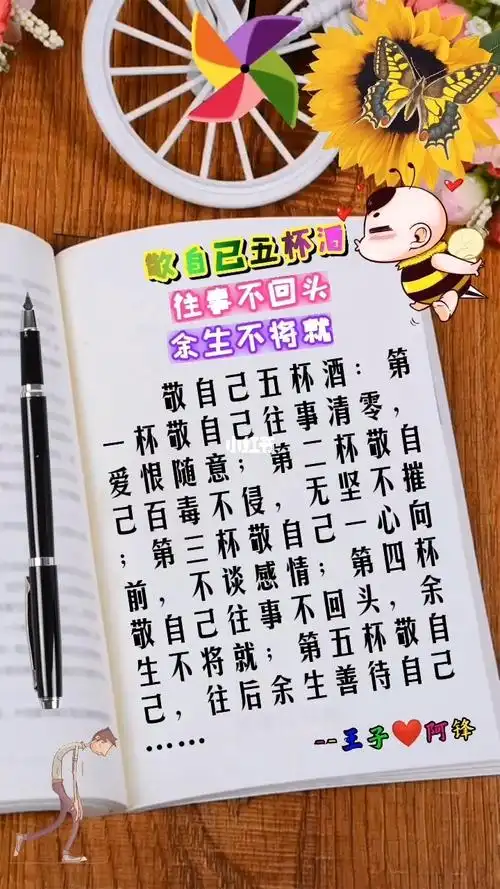 敬自己五杯酒
往事不回头
余生不将就
敬自己五杯酒：第
一杯敬自己往事清零，
爱恨随意；第二杯敬自
己百毒不侵，无坚不摧
；第三杯敬自己一心向
前，不谈感情；第四杯
敬自己往事不回头，余
生不将就；第五杯敬自
己，往后余生善待自己
……
--王子❤阿锋
小红书